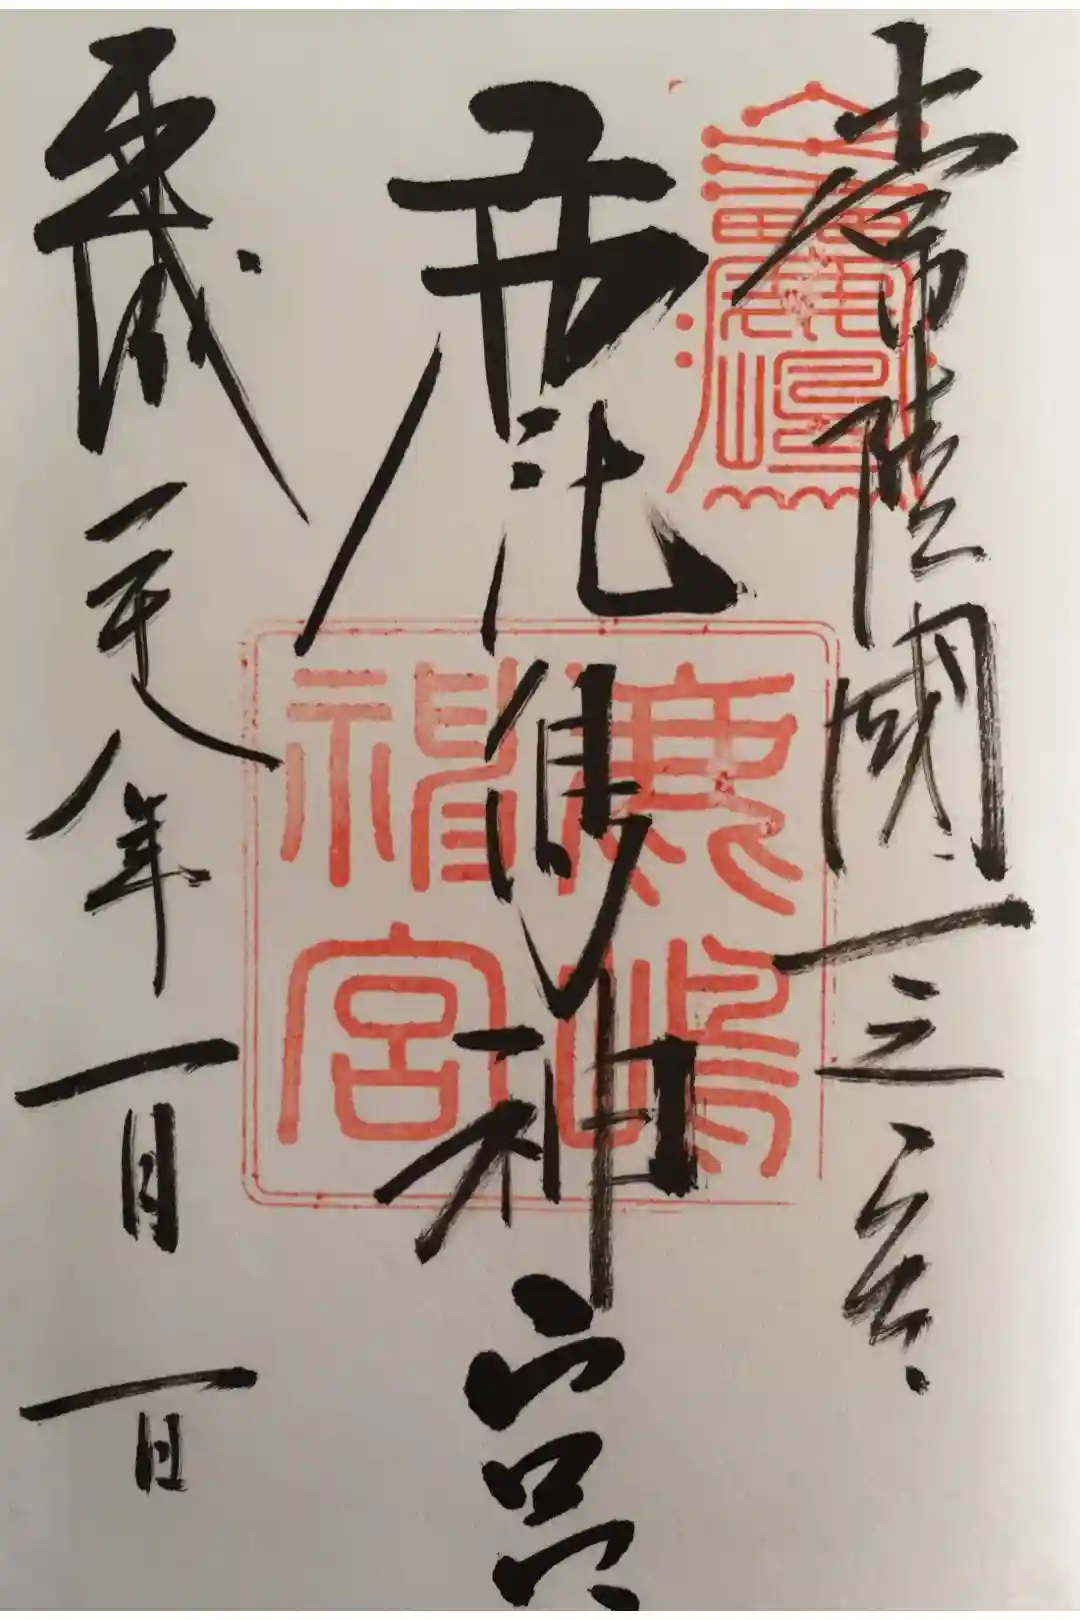 常陸國一之宮
鹿島神宮
平成二十八年一月一日
鹿嶋
神宮